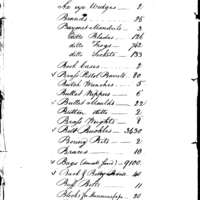 Axe eye Wedges - 2
Brands - 25
Bayonet Mandrils - 3
ditto Blades - 124
ditto Frogs - 742
ditto Sockets - 133
Book Cases - 2
✓ Brass Pistol Barrels - 80
Breech Wrenches - 5
Bullet Nippers - 6
✓ Bullet Moulds - 22
Button ditto - 2
Brass Weights - 8
✓ Belt Buckles - 3430
Boring Bits - 2
Braces - 10
✓ Bags (small) - 9100
✓ Back & - 40
Buff Belts - 11
Blocks for - 20